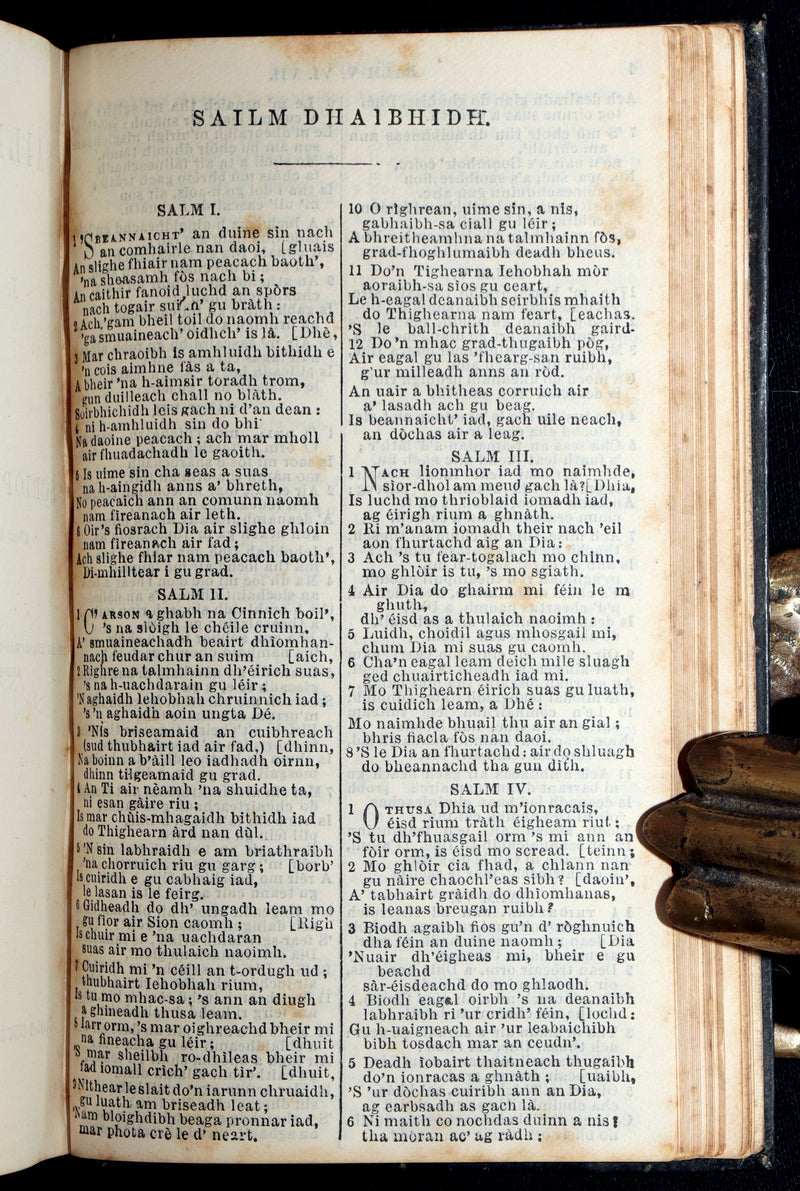 SAILM DHAIBHIDH.
SALM I.
1 'S BEANNAICHT' an duine sin nach
an comhairle nan daoi, [gluais
An slighe fhiair nam peacach baoth',
'na sheasamh fòs nach bi;
An caithir fanoid luchd an spòrs
nach togair suidh' gu bràth:
2 Ach 'gam bheil toil do naomh reachd
'ga smuaineach' oidhch' is là. [Dhè,
3 Mar chraoibh is amhluidh bithidh e
'n cois aimhne fàs a ta,
A bheir 'na h-aimsir toradh trom,
gun duilleach chall no blàth.
Soirbhichidh leis gach ni d'an dean:
4 ni h-amhluidh sin do bhi
Na daoine peacach; ach mar mholl
air fhuadachadh le gaoith.
5 Is uime sin cha seas a suas
na h-aingidh anns a' bhreth,
No peacaich ann an comunn naomh
nam fireanach air leth.
6 Oir's fiosrach Dia air slighe ghloin
nam fireanach air fad;
Ach slighe fhiar nam peacach baoth',
Di-mhilltear i gu grad.
SALM II.
1 CARSON a ghabh na Cinnich boil',
's na slòigh le chéile cruinn,
A' smuaineachadh beairt dhiomhan-
nach feudar chur an suim [aich,
2 Righre na talmhainn dh'éirich suas,
's na h-uachdarain gu léir;
'N aghaidh Iehobhah chruinnich iad;
's 'n aghaidh aoin ungta Dé.
3 'Nis briseamaid an cuibhreach
(sud thubhairt iad air fad,) [dhinn,
Na boinn a b'àill leo iadhadh oirnn,
dhinn tilgeamaid gu grad.
4 An Ti air nèamh 'na shuidhe ta,
ni esan gàire riu;
Is mar chùis-mhagaidh bithidh iad
do Thighearn àrd nan dùl.
5 'N sin labhraidh e am briathraibh
'na chorruich riu gu garg; [borb'
Is cuiridh e gu cabhaig iad,
le lasan is le feirg.
6 Gidheadh do dh' ungadh leam mo
gu fior air Sion caomh; [Righ
Is chuir mi e 'na uachdaran
suas air mo thulaich naoimh.
7 Cuiridh mi 'n céill an t-ordugh ud;
thubhairt Iehobhah rium,
Is tu mo mhac-sa; 's ann an diugh
a ghineadh thusa leam.
8 Iarr orm, 's mar oighreachd bheir mi
na fineacha gu léir; [dhuit
'S mar sheilbh ro-dhileas bheir mi
fad iomall crìch' gach tìr'. [dhuit,
9 Nithear le slait do'n iarunn chruaidh,
gu luath am briseadh leat;
'Nam bloighdibh beaga pronnar iad,
mar phota crè le d' neart.
10 O righrean, uime sin, a nis,
gabhaibh-sa ciall gu léir;
A bhreitheamhna na talmhainn fòs,
grad-fhoghlumaibh deadh bheus.
11 Do'n Tighearna Iehobhah mòr
aoraibh-sa sìos gu ceart,
Le h-eagal deanaibh seirbhis mhaith
do Thighearna nam feart, [eachas.
'S le ball-chrith deanaibh gaird-
12 Do 'n mhac grad-thugaibh pòg,
Air eagal gu las 'fhearg-san ruibh,
g'ur milleadh anns an ròd.
An uair a bhitheas corruich air
a' lasadh ach gu beag.
Is beannaicht' iad, gach uile neach,
an dòchas air a leag.
SALM III.
1 NACH lionmhor iad mo naimhde,
sior-dhol am meud gach là? [Dhia,
Is luchd mo thrioblaid iomadh iad,
ag éirigh rium a ghnàth.
2 Ri m'anam iomadh their nach 'eil
aon fhurtachd aig an Dia:
3 Ach 's tu fear-togalach mo chinn,
mo ghlòir is tu, 's mo sgiath.
4 Air Dia do ghairm mi féin le m
ghuth,
dh' éisd as a thulaich naoimh:
5 Luidh, choidil agus mhosgail mi,
chum Dia mi suas gu caomh.
6 Cha'n eagal leam deich mile sluagh
ged chuairticheadh iad mi.
7 Mo Thighearn éirich suas gu luath,
is cuidich leam, a Dhé:
Mo naimhde bhuail thu air an gial;
bhris fiacla fòs nan daoi.
8 'S le Dia an fhurtachd: air do shluagh
do bheannachd tha gun dìth.
SALM IV.
1 O THUSA Dhia ud m'ionracais,
éisd rium tràth éigheam riut;
'S tu dh'fhuasgail orm 's mi ann an
fòir orm, is éisd mo scread. [teinn;
2 Mo ghlòir cia fhad, a chlann nan
gu nàire chaochl'eas sibh? [daoin',
A' tabhairt gràidh do dhìomhanas,
is leanas breugan ruibh?
3 Biodh agaibh fios gu'n d' ròghnuich
dha féin an duine naomh; [Dia
'Nuair dh'éigheas mi, bheir e gu
beachd
sàr-éisdeachd do mo ghlaodh.
4 Biodh eagal oirbh 's na deanaibh
labhraibh ri 'ur cridh' féin, [lochd:
Gu h-uaigneach air 'ur leabaichibh
bibh tosdach mar an ceudn'.
5 Deadh ìobairt thaitneach thugaibh
do'n ionracas a ghnàth; [uaibh,
'S 'ur dòchas cuiribh ann an Dia,
ag earbsadh as gach là.
6 Ni maith co nochdas duinn a nis?
tha mòran ac' ag ràdh: